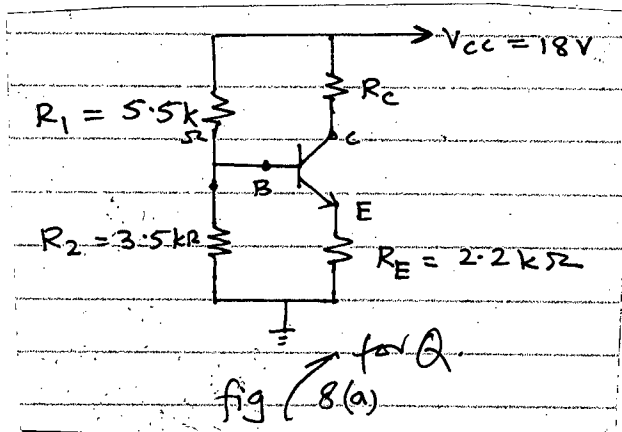 VCC = 18V
RC
R1 = 5.5k
Ω
C
B
E
R2 = 3.5kΩ
RE = 2.2kΩ
for Q.
fig 8(a)